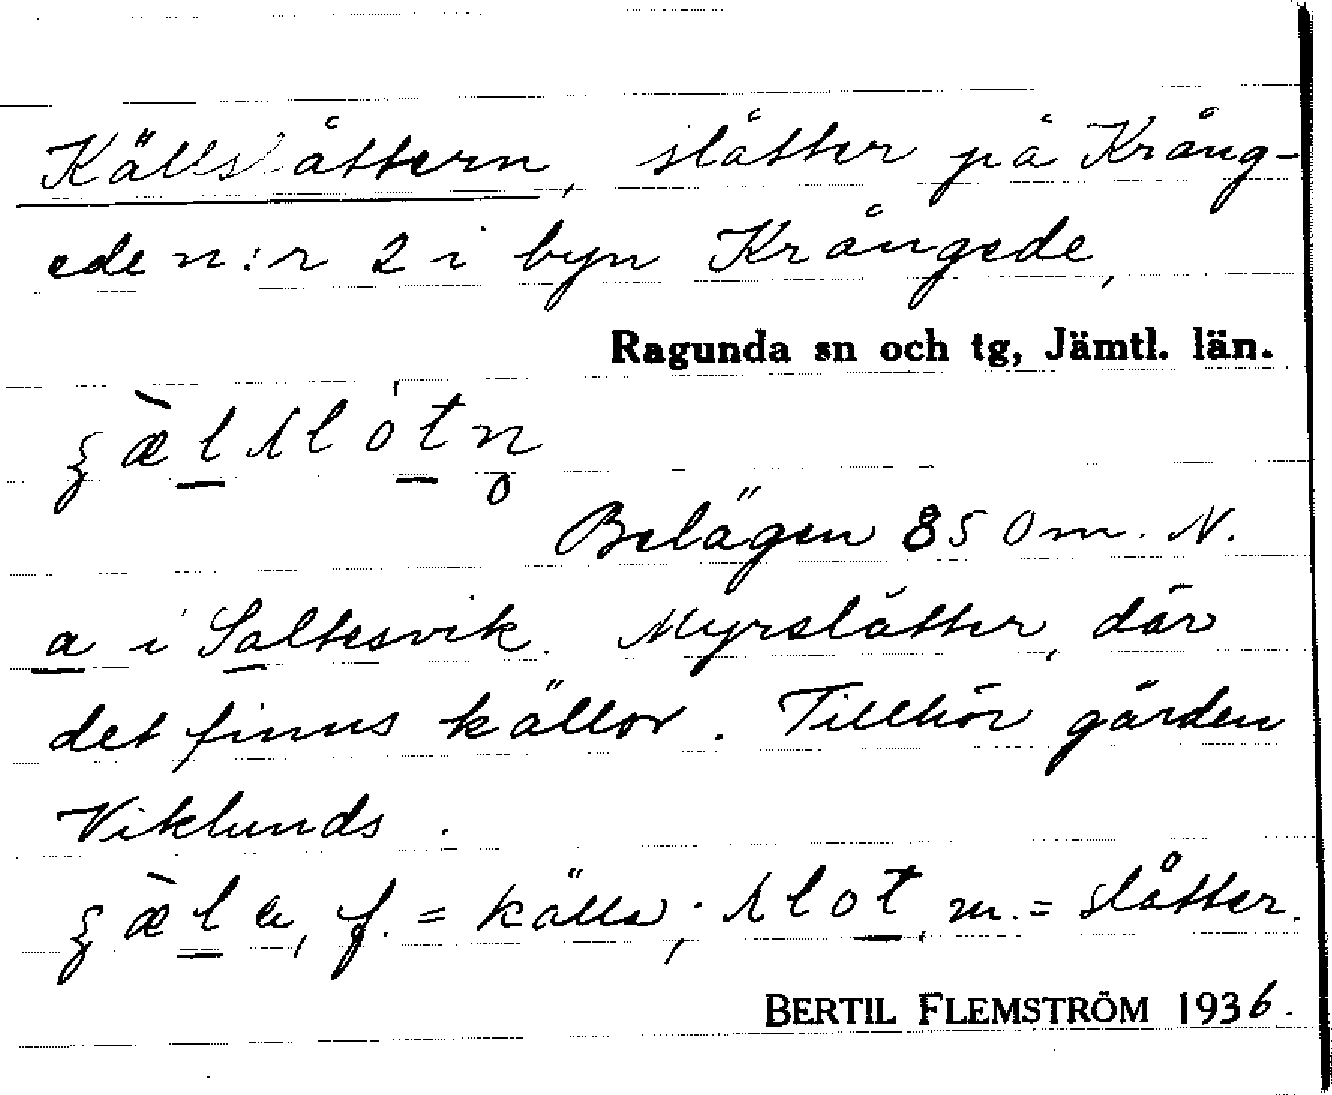 Källslåttern, slåtter på Krång-
ede n:r 2 i byn Krångede,
Ragunda sn och tg, Jämtl. län.
ʒæ̀lslo'tn̥
Belägen 850 m. N.
a i Saltesvik. Myrslåtter, där
det finns källor. Tillhör gården
Viklunds.
ʒæ̀la, f. = källa; slot, m. = slåtter.
BERTIL FLEMSTRÖM 1936.